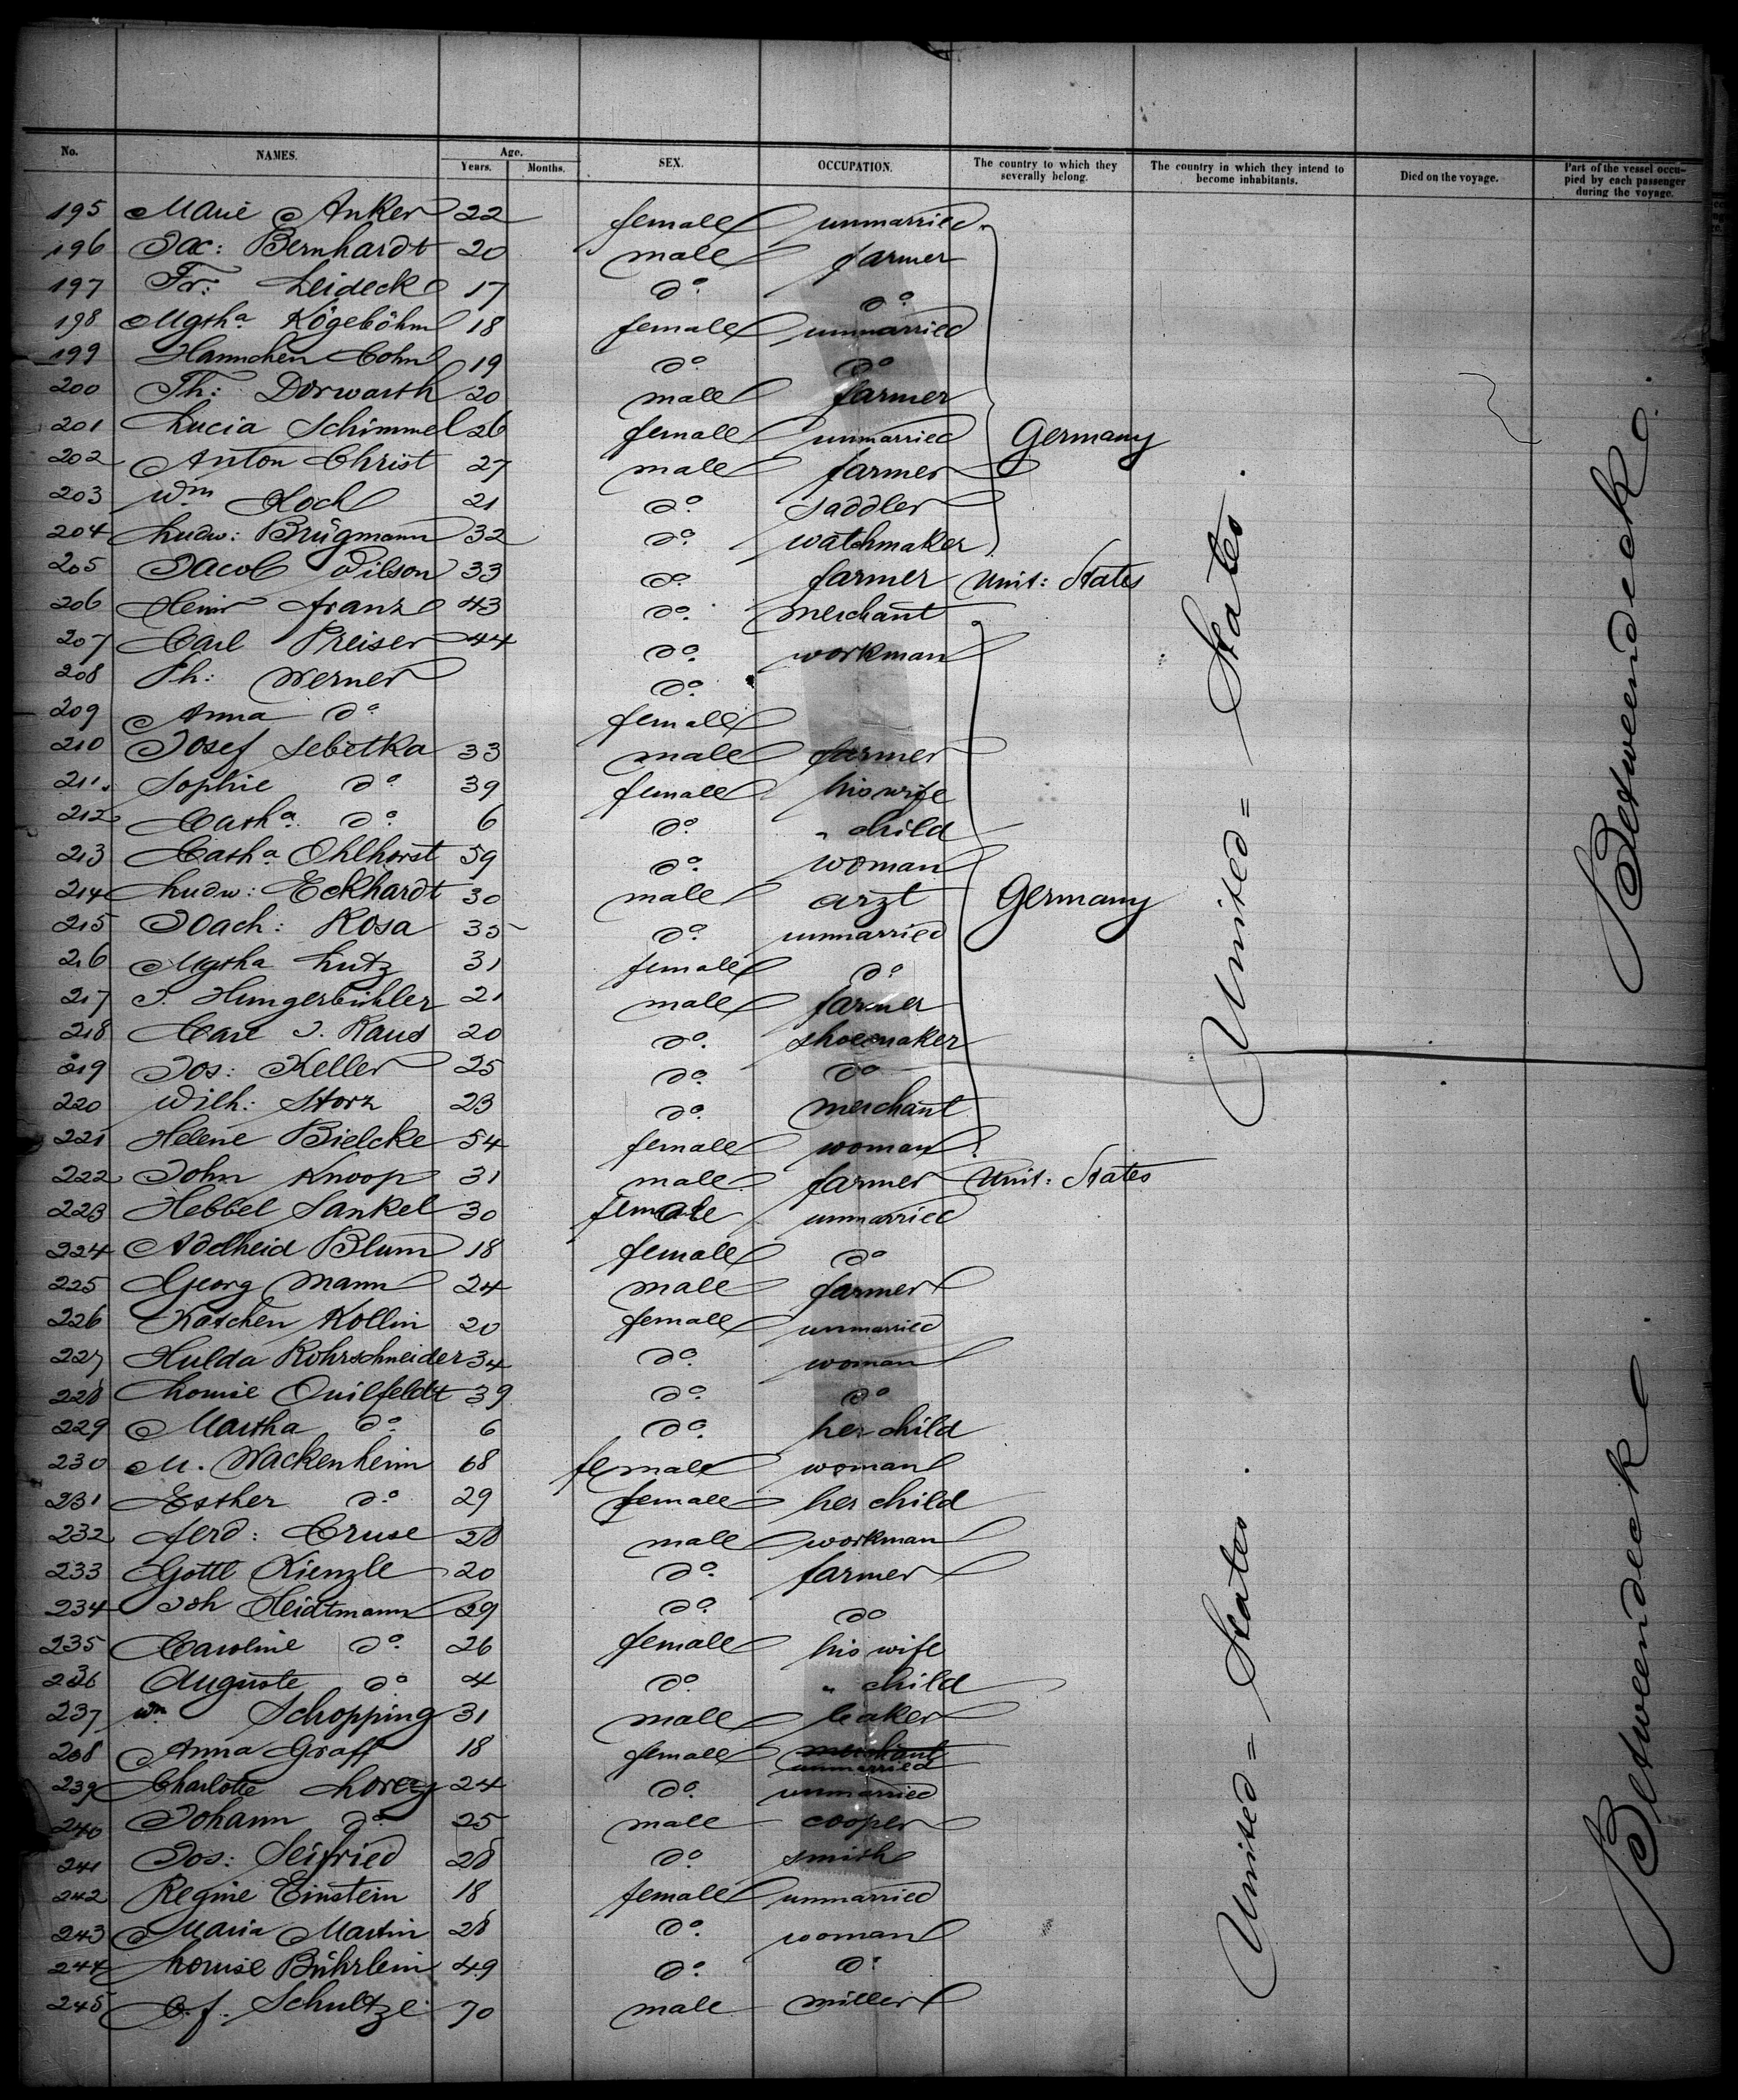 No. NAMES. Age. Years. Months. SEX. OCCUPATION. The country to which they severally belong. The country in which they intend to become inhabitants. Died on the voyage. Part of the vessel occupied by each passenger during the voyage.
195 Marie Anker 22 female unmarried
196 Jac: Bernhardt 20 male farmer
197 Fr: Leideck 17 do. do
198 Mgtha Kögeböhm 18 female unmarried
199 Hannchen Cohn 19 do do
200 Th: Dorwarth 20 male farmer
201 Lucia Schimmel 26 female unmarried Germany
202 Anton Christ 27 male farmer
203 Wm 21 do. saddler
204 Ludw: Brügmann 32 do. watchmaker
205 Jacob 33 do. farmer Unit: States
206 Heinr Franz 43 do. merchant
207 Carl Preiser 44 do. workman
208 Ph: Werner do.
209 Anna do female
210 Josef Sebetka 33 male farmer
211. Sophie do 39 female his wife
212 Catha. do. 6 do. " child
213 Catha Ohlhorst 59 do. woman
214 Ludw: Eckhardt 30 male arzt Germany
215 Joach: Rosa 35 do. unmarried
216 Mgtha Lutz 31 female do
217 J. Hungerbühler 21 male farmer
218 Carl J. Raus 20 do. shoemaker
219 Jos: Keller 25 do. do
220 Wilh: Storz 23 do. merchant
221 Helene Bielcke 54 female woman
222 John Knoop 31 male farmer Unit: States
223 Hebbel Sankel 30 female unmarried
224 Adelheid Blum 18 female do
225 Georg Mann 24 male farmer
226 Kätchen Kollin 20 female unmarried
227 Hulda Rohrschneider 34 do. woman
228 Louise Quilfeldt 39 do. do
229 Martha do 6 do. her child
230 M. Wackenheim 68 female woman
231 Esther do. 29 female her child
232 Ferd: Cruse 28 male workman
233 Gottl Kienzle 20 do. farmer
234 Joh Heidtmann 29 do. do
235 Caroline do. 26 female his wife
236 Auguste do 4 do. " child
237 Wm Schopping 31 male baker
238 Anna Graff 18 female merchant unmarried
239 Charlotte Lorey 24 do. unmarried
240 Johann do 25 male cooper
241 Jos: Seifried 28 do. smith
242 Regine Einstein 18 female unmarried
243 Maria Martin 28 do. woman
244 Louise Bührlein 49 do. do
245 C. F. Schultze 70 male miller
United = States.
United = States.
Betweendeck.
Betweendeck